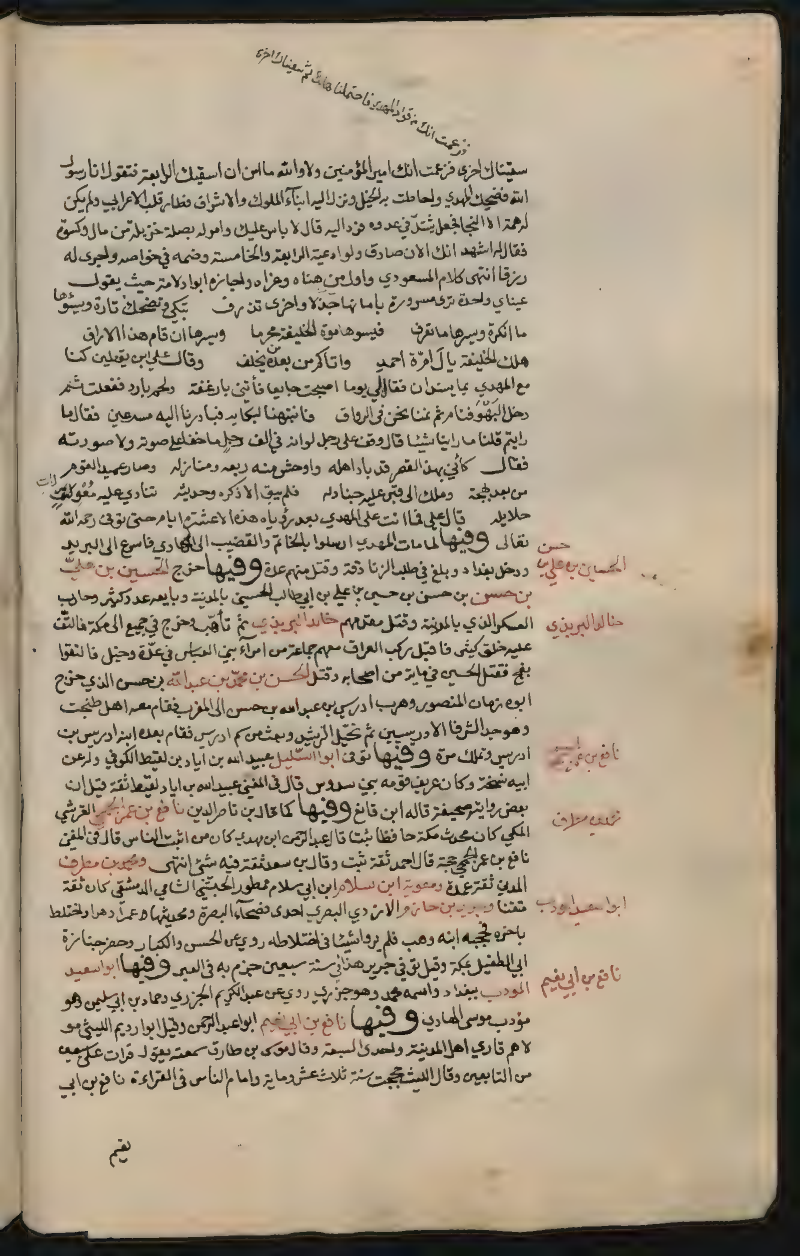 فزعمت انك من قواد المهدي فاحتملنا هالك ثم سقيناك اخرى
سقيناك اخرى فزعمت انك امير المؤمنين ولا والله ما امن ان اسقيك الرابعة فتقول انا رسول
الله فضحك المهدي واحاطت به الخيل ونزل اليه ابناء الملوك والاشراف فطار قلب الاعرابي ولم يكن
له همة الا النجا فجعل يشتد في عدوه فرد اليه قال لا باس عليك وامر له بصلة جزيلة من مال وكسوة
فقال له اشهد انك الان صادق ولو ادعيت الرابعة والخامسة وضمه في خواصه واجرى له
رزقا انتهى كلام المسعودي واول من هناه وعزاه واجازه ابو دلامة حيث يقول
عيناي واحدة ترى مسرورة بامامها جذلا واخرى تذرف تبكي وتضحك تارة ويسؤها
ما انكرت ويسرها ما تعرف فيسوها موت الخليفة محرما ويسرها ان قام هذا الاراف
هلك الخليفة يال امة احمد واتاكم من بعده من يخلف وقال علي ابن يقطين كنا
مع المهدي بماسبذان فقال لي يوما اصبحت جايعا فأتني بارغفة ولحم بارد ففعلت ثم
دخل البهو فنام ثم نمنا نحن في الرواق فانتبهنا لبكايه فبادرنا اليه مسرعين فقال ما
رايتم قلنا ما راينا شيئا قال وقف علي رجل لو انه في الف رجل ما خفا علي صوته ولا صورته
فقال كأني بهذا القصر قد باد اهله واوحش منه ربعه ومنازله وصار عميد القوم
من بعد بهجة وملك الى قبر عليه جنادله فلم يبق الا ذكره وحديثه تنادي عليه معولات
حلايله قال علي فما اتت على المهدي بعد رؤياه هذه الا عشرة ايام حتى توفي رحمه الله
تعالى وفيها لما مات المهدي ارسلوا بالخاتم والقضيب الى الهادي فاسرع الى البريد
ودخل بغداد وبلغ في طلب الزنادقة وقتل منهم عدة وفيها خرج الحسين بن علي
بن حسن بن حسن بن حسين بن علي بن ابي طالب الحسني بالمدينة وبايعه عدد كثير وحارب
العسكر الذي بالمدينة وقتل مقدمهم خالد البريدي ثم تأهب وخرج في جمع الى مكة فالتف
عليه خلق كثير فاقبل ركب العراق معهم جماعة من امراء بني العباس في عدة وخيل فالتقوا
بفخ فقتل الحسين في ماية من اصحابه وقتل الحسن بن محمد بن عبد الله بن حسن الذي خرج
ابوه زمان المنصور وهرب ادريس بن عبد الله بن حسن الى المغرب فقام معه اهل طنجت
وهو جد الشرفا الادريسيين ثم تحيل الرشيد وبعث من سم ادريس فقام بعده ابنه ادريس بن
ادريس وتملك مدة وفيها توفي ابو السليل عبيد الله بن اياد بن لقيط الكوفي روى عن
ابيه نسخة وكان عريف قومه بني سدوس قال في المغني عبيد الله بن اياد بن لقيط ثقة قيل ان
بعض روايته صحيفة قاله ابن قانع وفيها كما قال بن ناصر الدين نافع بن عمر الجمحي القرشي
المكي كان محدث مكة حافظا ثبتا قال عبد الرحمن ابن مهدي كان من اثبت الناس قال في المغني
نافع بن عمر الجمحي حجة قال احمد ثقة ثبت وقال بن سعد ثقة فيه شئ انتهى ومحمد بن مطرف
المدني ثقة عدة ومعوية ابن سلام ابن ابي سلام ممطور الحبشي الشامي الدمشقي كان ثقة
متقنا وجرير بن حازم الازدي البصري احدى فصحاء البصرة ومحدثيها عمر دهرا واختلط
باخره فحجبه ابنه وهب فلم يرو شيئا في اختلاطه روى عن الحسن والكبار وحضر جنازة
ابي الطفيل بمكة وقيل توفي جرير هذا في سنة سبعين جزم به في العبر وفيها ابو سعيد
المودب ببغداد واسمه محمد وهو جزري روى عن عبد الكريم الجزري وحماد بن ابي سليمن وهو
مؤدب موسى الهادي وفيها نافع بن ابي نعيم ابو عبد الرحمن وقيل ابو رويم الليثي مو
لاهم قاري اهل المدينة واحدى السبعة وقال موسى بن طارق سمعته يقول قرات على سبعين
من التابعين وقال الليث حججت سنة ثلاث عشر وماية وامام الناس في القراءة نافع بن ابي
نعيم
حسن
الحسين بن علي بن
خالد البريدي
نافع بن عمر
محمد بن مطرف
ابو سعيد المودب
نافع بن ابي نعيم